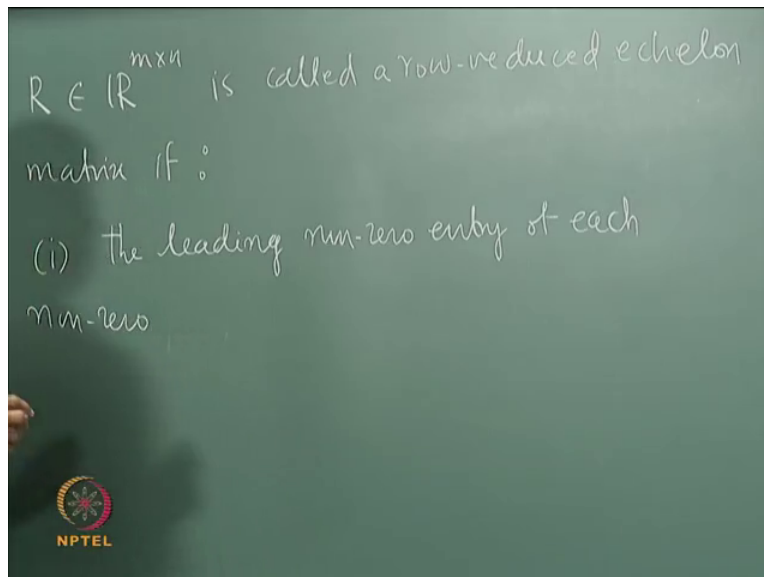 R ∈ ℝ^{m×n} is called a row-reduced echelon
matrix if :
(i) the leading non-zero entry of each
non-zero
NPTEL